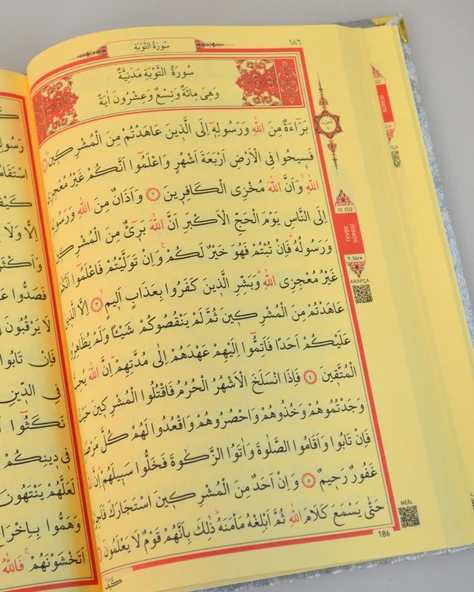 سُورَةُ التَّوْبَةِ
١٨٦
سُورَةُ التَّوْبَةِ مَدَنِيَّةٌ
وَهِيَ مِائَةٌ وَتِسْعٌ وَعِشْرُونَ اٰيَةً
بَرَٓاءَةٌ مِنَ اللّٰهِ وَرَسُولِه۪ٓ اِلَى الَّذ۪ينَ عَاهَدْتُمْ مِنَ الْمُشْرِك۪ينَ
فَس۪يحُوا فِي الْاَرْضِ اَرْبَعَةَ اَشْهُرٍ وَاعْلَمُٓوا اَنَّكُمْ غَيْرُ مُعْجِزِي
اللّٰهِ وَاَنَّ اللّٰهَ مُخْزِي الْكَافِر۪ينَ ٢ وَاَذَانٌ مِنَ اللّٰهِ وَرَسُولِه۪ٓ
اِلَى النَّاسِ يَوْمَ الْحَجِّ الْاَكْبَرِ اَنَّ اللّٰهَ بَر۪ٓيءٌ مِنَ الْمُشْرِك۪ينَ
وَرَسُولُهُ فَاِنْ تُبْتُمْ فَهُوَ خَيْرٌ لَكُمْ وَاِنْ تَوَلَّيْتُمْ فَاعْلَمُٓوا اَنَّكُمْ
غَيْرُ مُعْجِزِي اللّٰهِ وَبَشِّرِ الَّذ۪ينَ كَفَرُوا بِعَذَابٍ اَل۪يمٍ ٣ اِلَّا الَّذ۪ينَ
عَاهَدْتُمْ مِنَ الْمُشْرِك۪ينَ ثُمَّ لَمْ يَنْقُصُوكُمْ شَيْـًٔا وَلَمْ يُظَاهِرُوا
عَلَيْكُمْ اَحَدًا فَاَتِمُّٓوا اِلَيْهِمْ عَهْدَهُمْ اِلٰى مُدَّتِهِمْ اِنَّ اللّٰهَ يُحِبُّ
الْمُتَّق۪ينَ ٤ فَاِذَا انْسَلَخَ الْاَشْهُرُ الْحُرُمُ فَاقْتُلُوا الْمُشْرِك۪ينَ حَيْثُ
وَجَدْتُمُوهُمْ وَخُذُوهُمْ وَاحْصُرُوهُمْ وَاقْعُدُوا لَهُمْ كُلَّ مَرْصَدٍ
فَاِنْ تَابُوا وَاَقَامُوا الصَّلٰوةَ وَاٰتَوُا الزَّكٰوةَ فَخَلُّوا سَب۪يلَهُمْ اِنَّ اللّٰهَ
غَفُورٌ رَح۪يمٌ ٥ وَاِنْ اَحَدٌ مِنَ الْمُشْرِك۪ينَ اسْتَجَارَكَ فَاَجِرْهُ
حَتّٰى يَسْمَعَ كَلَامَ اللّٰهِ ثُمَّ اَبْلِغْهُ مَأْمَنَهُ ذٰلِكَ بِاَنَّهُمْ قَوْمٌ لَا يَعْلَمُونَ
10. CÜZ
9. Sûre
ARAPÇA
MEÂL
186
اِلَّا وَلَا
لَا يَرْقُبُونَ
فَاِنْ تَابُوا
فِي الدّ۪ينِ
نَكَثُٓوا
ف۪ي د۪ينِكُمْ
لَعَلَّهُمْ يَنْتَهُونَ
وَهَمُّوا بِاِخْرَاجِ
اَتَخْشَوْنَهُمْ فَاللّٰهُ